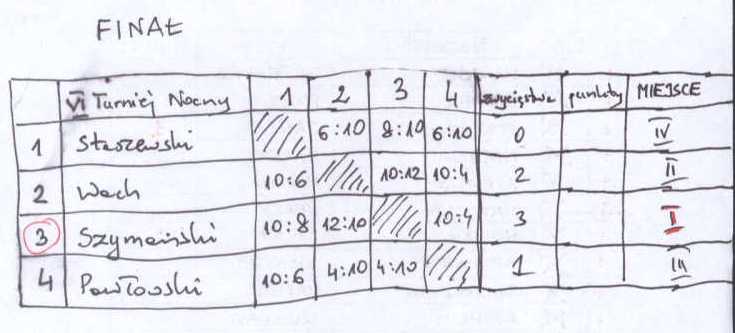 FINAŁ
VI Turniej Nocny 1 2 3 4 zwycięstwa punkty MIEJSCE
1 Staszewski 6:10 8:10 6:10 0 IV
2 Wach 10:6 10:12 10:4 2 II
3 Szymański 10:8 12:10 10:4 3 I
4 Pawłowski 10:6 4:10 4:10 1 III